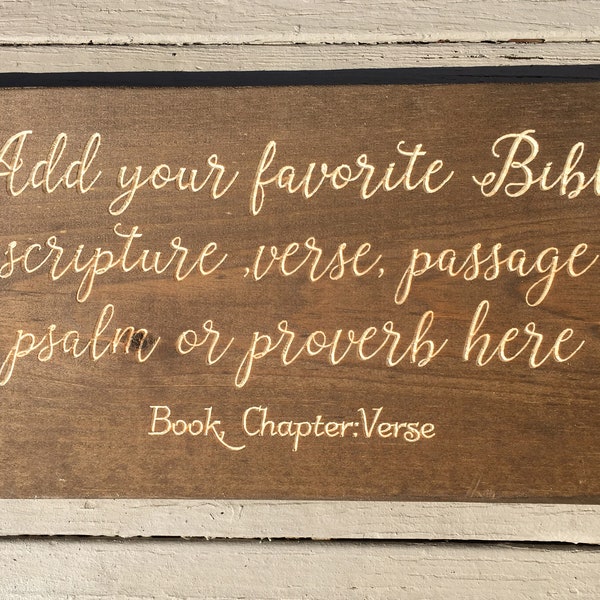 Add your favorite Bibl
scripture ,verse, passage
psalm or proverb here
Book, Chapter:Verse